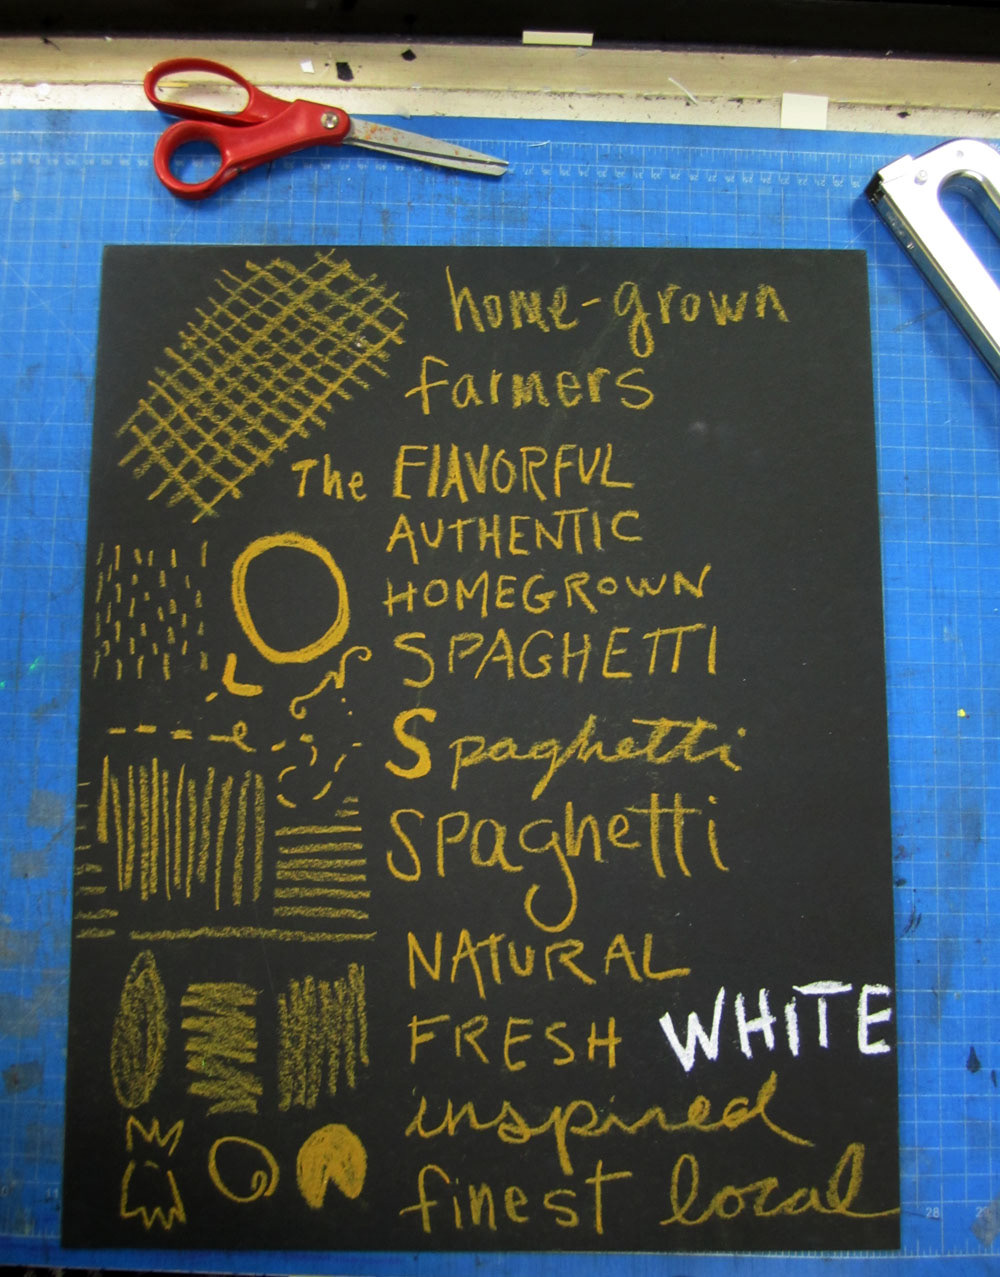 home-grown
farmers
The FlAVORFUL
AUTHENTIC
HOMEGROWN
SPAGHETTI
Spaghetti
Spaghetti
NATURAL
FRESH WHiTE
inspired
finest local
28